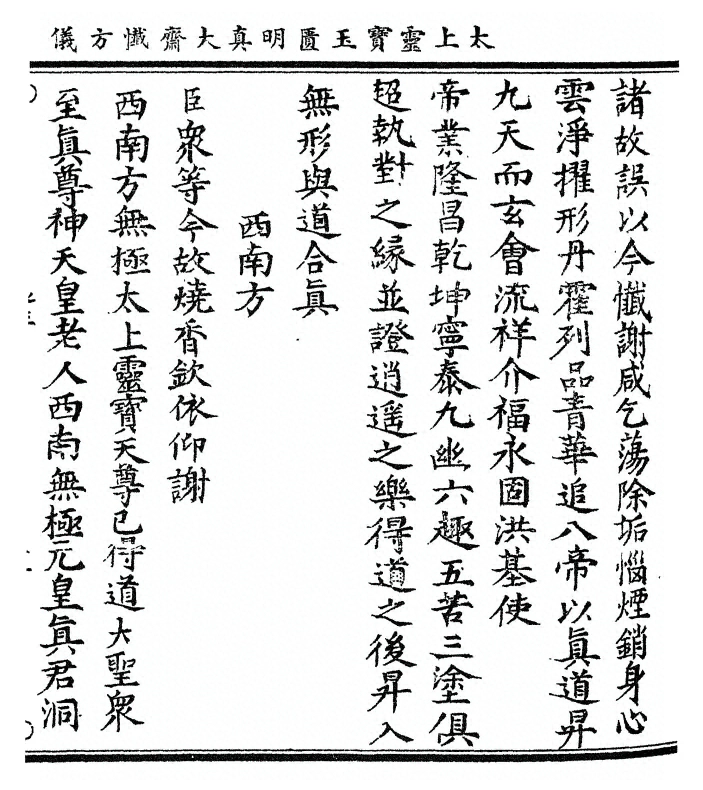 太上靈寶玉匱明真大齋懺方儀
諸故誤以今懺謝咸乞蕩除垢惱煙銷身心
雲淨擢形丹霍列品青華追八帝以眞道昇
九天而玄會流祥介福永固洪基使
帝業隆昌乾坤寧泰九幽六趣五苦三塗俱
超執對之緣並證逍遥之樂得道之後昇入
無形與道合眞
西南方
臣衆等今故燒香欽依仰謝
西南方無極太上靈寶天尊已得道大聖衆
至眞尊神天皇老人西南無極元皇眞君洞